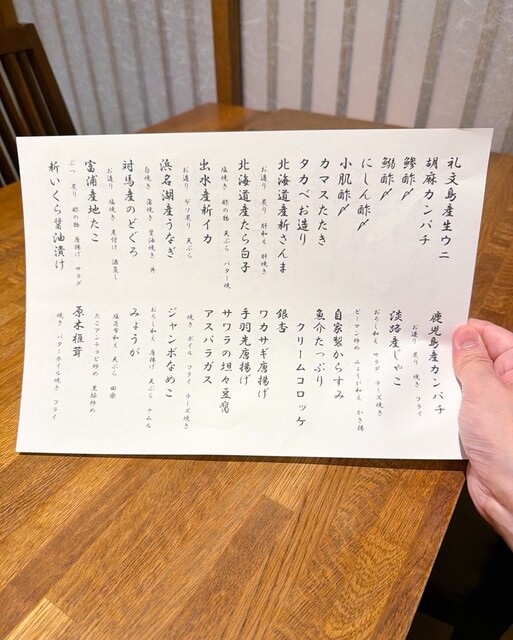 礼文島産生ウニ
胡麻カンパチ
鯵酢〆
鰯酢〆
にしん酢〆
小肌酢〆
カマスたたき
タカベお造り
北海道産新さんま
お造り 炙り 肝和え 肝焼き
北海道産たら白子
塩焼き 酢の物 天ぷら バター焼
出水産新イカ
お造り ゲソ炙り 天ぷら
浜名湖産うなぎ
白焼き 蒲焼き 醤油焼き 丼
対馬産のどぐろ
お造り 塩焼き 煮付け 酒蒸し
富浦産地たこ
ぶつ 炙り 酢の物 唐揚げ サラダ
新いくら醤油漬け
鹿児島産カンパチ
お造り 炙り 焼き フライ
淡路産じゃこ
おろし和え サラダ チーズ焼き
ピーマン炒め みょうが和え かき揚
自家製からすみ
魚介たっぷり
クリームコロッケ
銀杏
ワカサギ唐揚げ
手羽先唐揚げ
サワラの坦々豆腐
アスパラガス
焼き ボイル フライ チーズ焼き
ジャンボなめこ
おろし和え 唐揚げ 天ぷら ナムル
みょうが
塩昆布和え 天ぷら 田楽
たこアンチョビ炒め 豆豉炒め
原木椎茸
焼き バターホイル焼き フライ